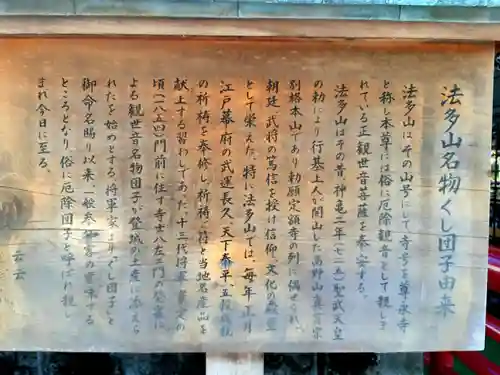 法多山名物くし団子由来
法多山は、その山号にして、寺号を尊永寺
と称し本尊には俗に厄除観音として親しま
れている正観世音菩薩を奉安する。
法多山はその昔、神亀二年(七二五)聖武天皇
の勅により行基上人が開山した高野山真言宗
別格本山であり勅願定額寺の列に偶せられ、
朝廷、武将の篤信を授け信仰、文化の殿堂
として栄えた。特に法多山では、毎年、正月
江戸幕府の武運長久、天下泰平、五穀豊穣
の祈祷を奉修し祈祷之符と当地名産品を
献上する習わしであた、十三代将軍家定の
頃(一八五四)門前に住す寺士八左ェ門の発案に
よる観世音名物団子が登城の土産に添えら
れたを始めとする、将軍家よりくし団子と
御命名賜り以来一般参詣者の
ところとなり俗に厄除団子と呼ばれ親し
まれ今日に至る。
云云